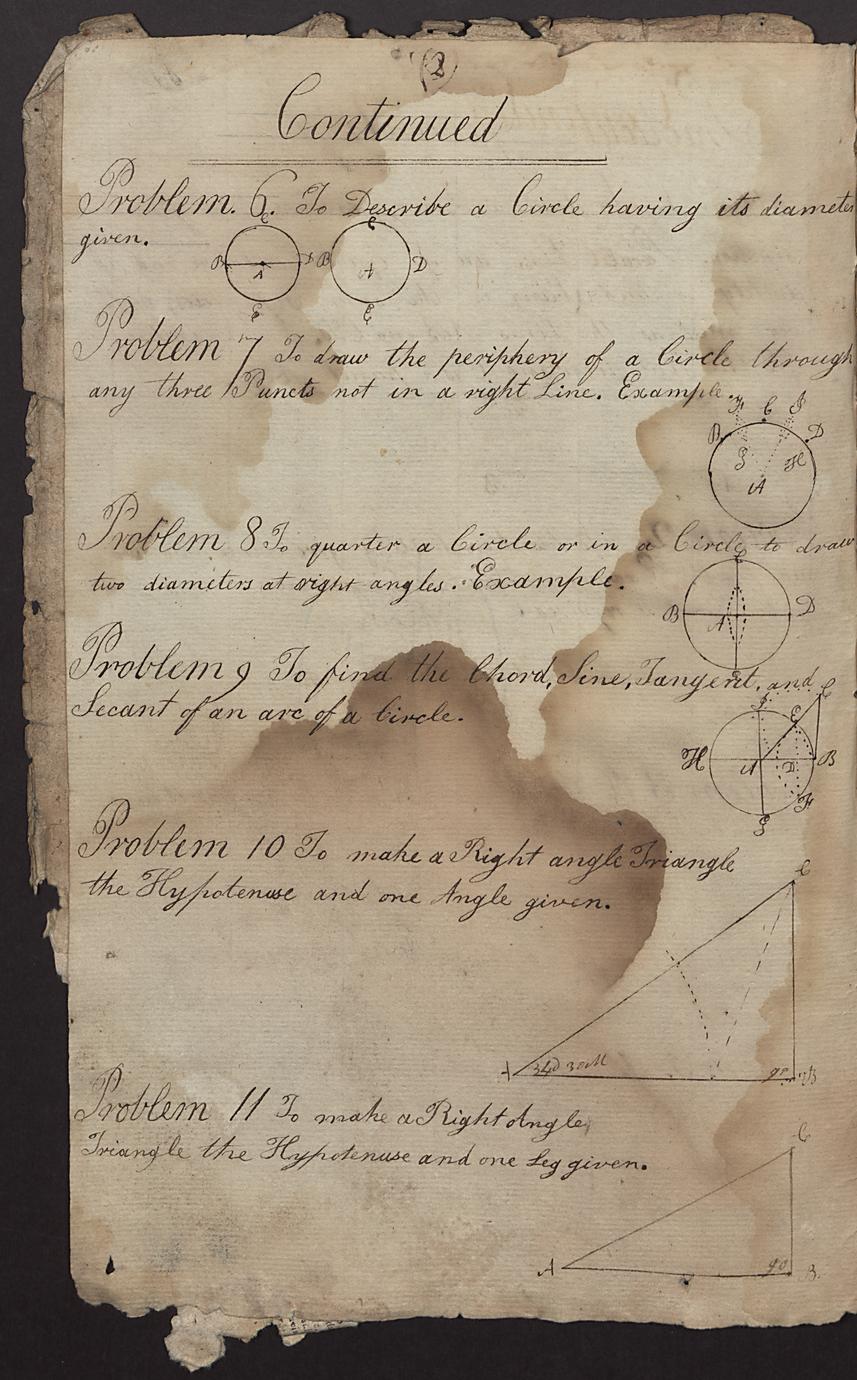 (2)
Continued
Problem. 6. To Describe a Circle having its diameter
given.
C C
B D B D
A A
E E
Problem 7 To draw the periphery of a Circle through
any three Puncts not in a right Line. Example.
C
B D
H
A
Problem 8 To quarter a Circle or in a Circle to draw
two diameters at right angles. Example.
C
B A D
E
Problem 9 To find the Chord, Sine, Tangent, and
Secant of an arc of a Circle.
H A D B
F
Problem 10 To make a Right angle Triangle
the Hypotenuse and one Angle given.
C
34D 30M 90 B
Problem 11 To make a Right Angle
Triangle the Hypotenuse and one Leg given.
C
A 90 B